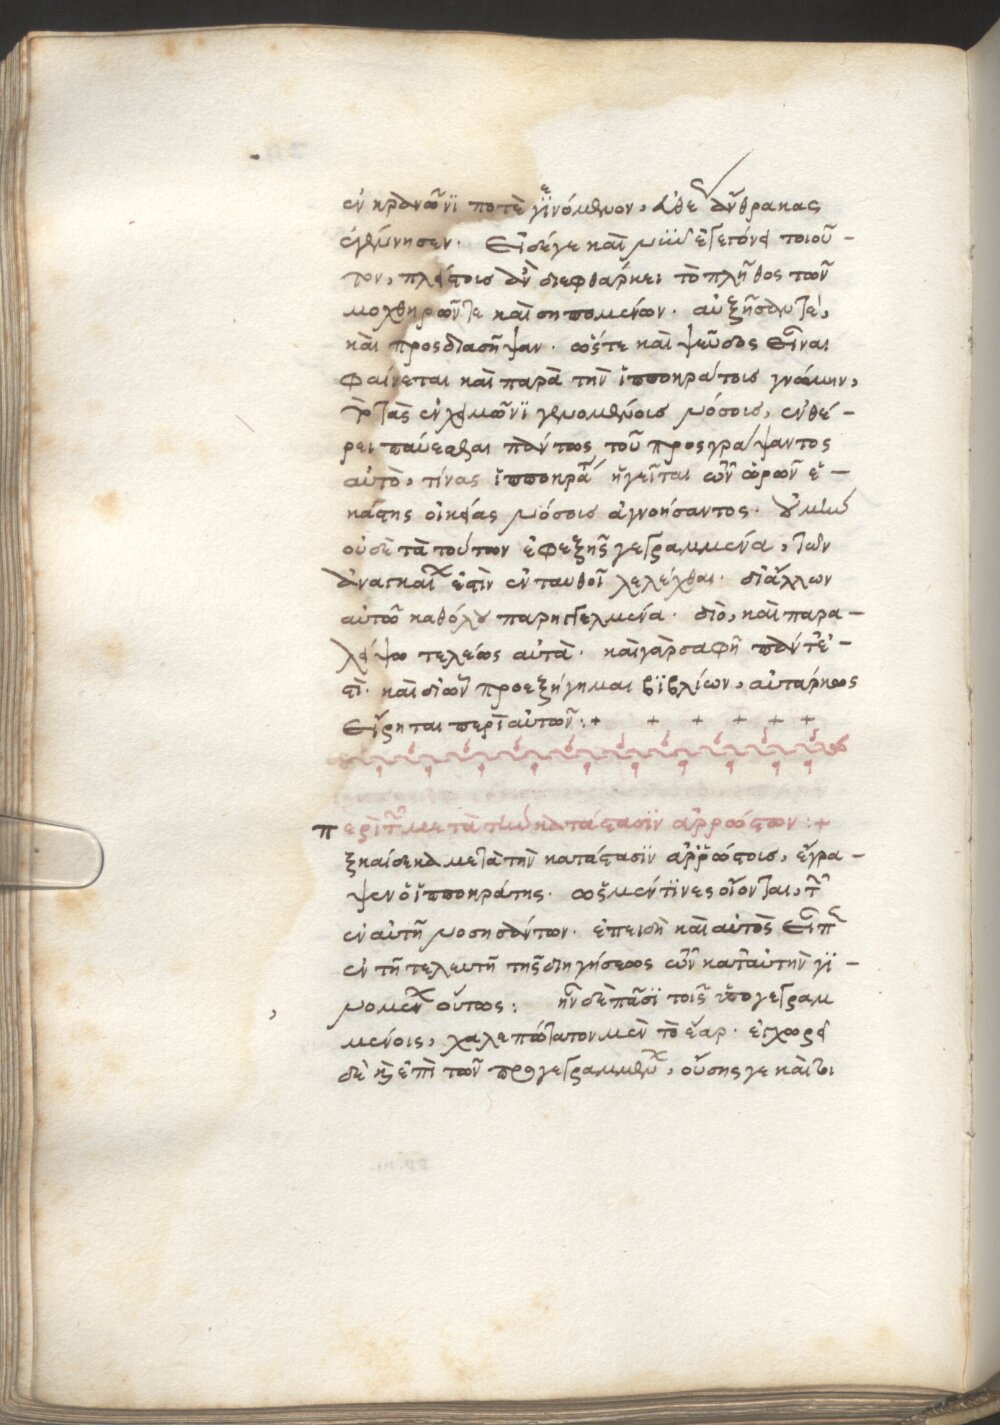 ἐν κρανῶνι ποτὲ γϊνόμενον, ἀθε ἄνθρακας
ἐγέννησεν. εἰ δέ γε καὶ μὴ ἐγεγόνει τοιοῦ –
τον, πλείστοις ἂν διεφθάρκει τὸ πλῆθος τῶν
μοχθηρῶν τε καὶ σηπομένων. αὐξῆσαν τε,
καὶ προσδιασῆψαν. ὥστε καὶ ψεῦδος εἶναι
φαίνεται καὶ παρὰ τὴν ἱπποκράτους γνώμην,
τὸ τὰς ἐν χειμῶνϊ γενομένοις νόσοις, ἐν θέ –
ρει παύεσθαι πάντως τοῦ προσγράψαντος
αὐτὸ, τίνας ἱπποκρά ἡγεῖται τῶν ὡρῶν ἑ –
κάστης οἰκείας νόσοις ἀγνοήσαντος. οὐ μὴν
οὐδὲ τὰ τούτων ἐφεξῆς γεγραμμένα, τῶν
ἀναγκαί ἐστὶν ἐνταυθοῖ λελέχθαι. δι' ἄλλων
αὐτῶ καθόλου παρηγγελμένα. διὸ, καὶ παρα –
λείψω τελέως αὐτὰ. καὶ γὰρ σαφῆ πάντ' ἐ –
στὶ. καὶ δι' ὧν προεξήγημαι βϊβλίων, αὐτάρκως
εἴρηται περὶ αὐτῶν :+ + + + + +
περὶ τῶν μετὰ τὴν κατάστασϊν ἀρρώστων :+
ξκαίδεκα μετὰ τὴν κατάστασϊν ἀρρώστοις, ἔγρα –
ψεν ὁ ἱπποκράτης. ὡς μέν τϊνες οἴονται, τῶν
ἐν αὐτῇ νοσησάντων. ἐπειδὴ καὶ αὐτὸς εἶπ
ἐν τῇ τελευτῇ τῆς διηγήσεως τῶν κατ' αὐτὴν γϊ –
νομέν οὕτως : ἦν δὲ πᾶσϊ τοῖς ὑπογεγραμ
μένοις, χαλεπώτατον μὲν τὸ ἔαρ. ἐγχωρεῖ
δὲ καὶ ἐπὶ τῶν προγεγραμμέν, οὔσης γε καὶ τι